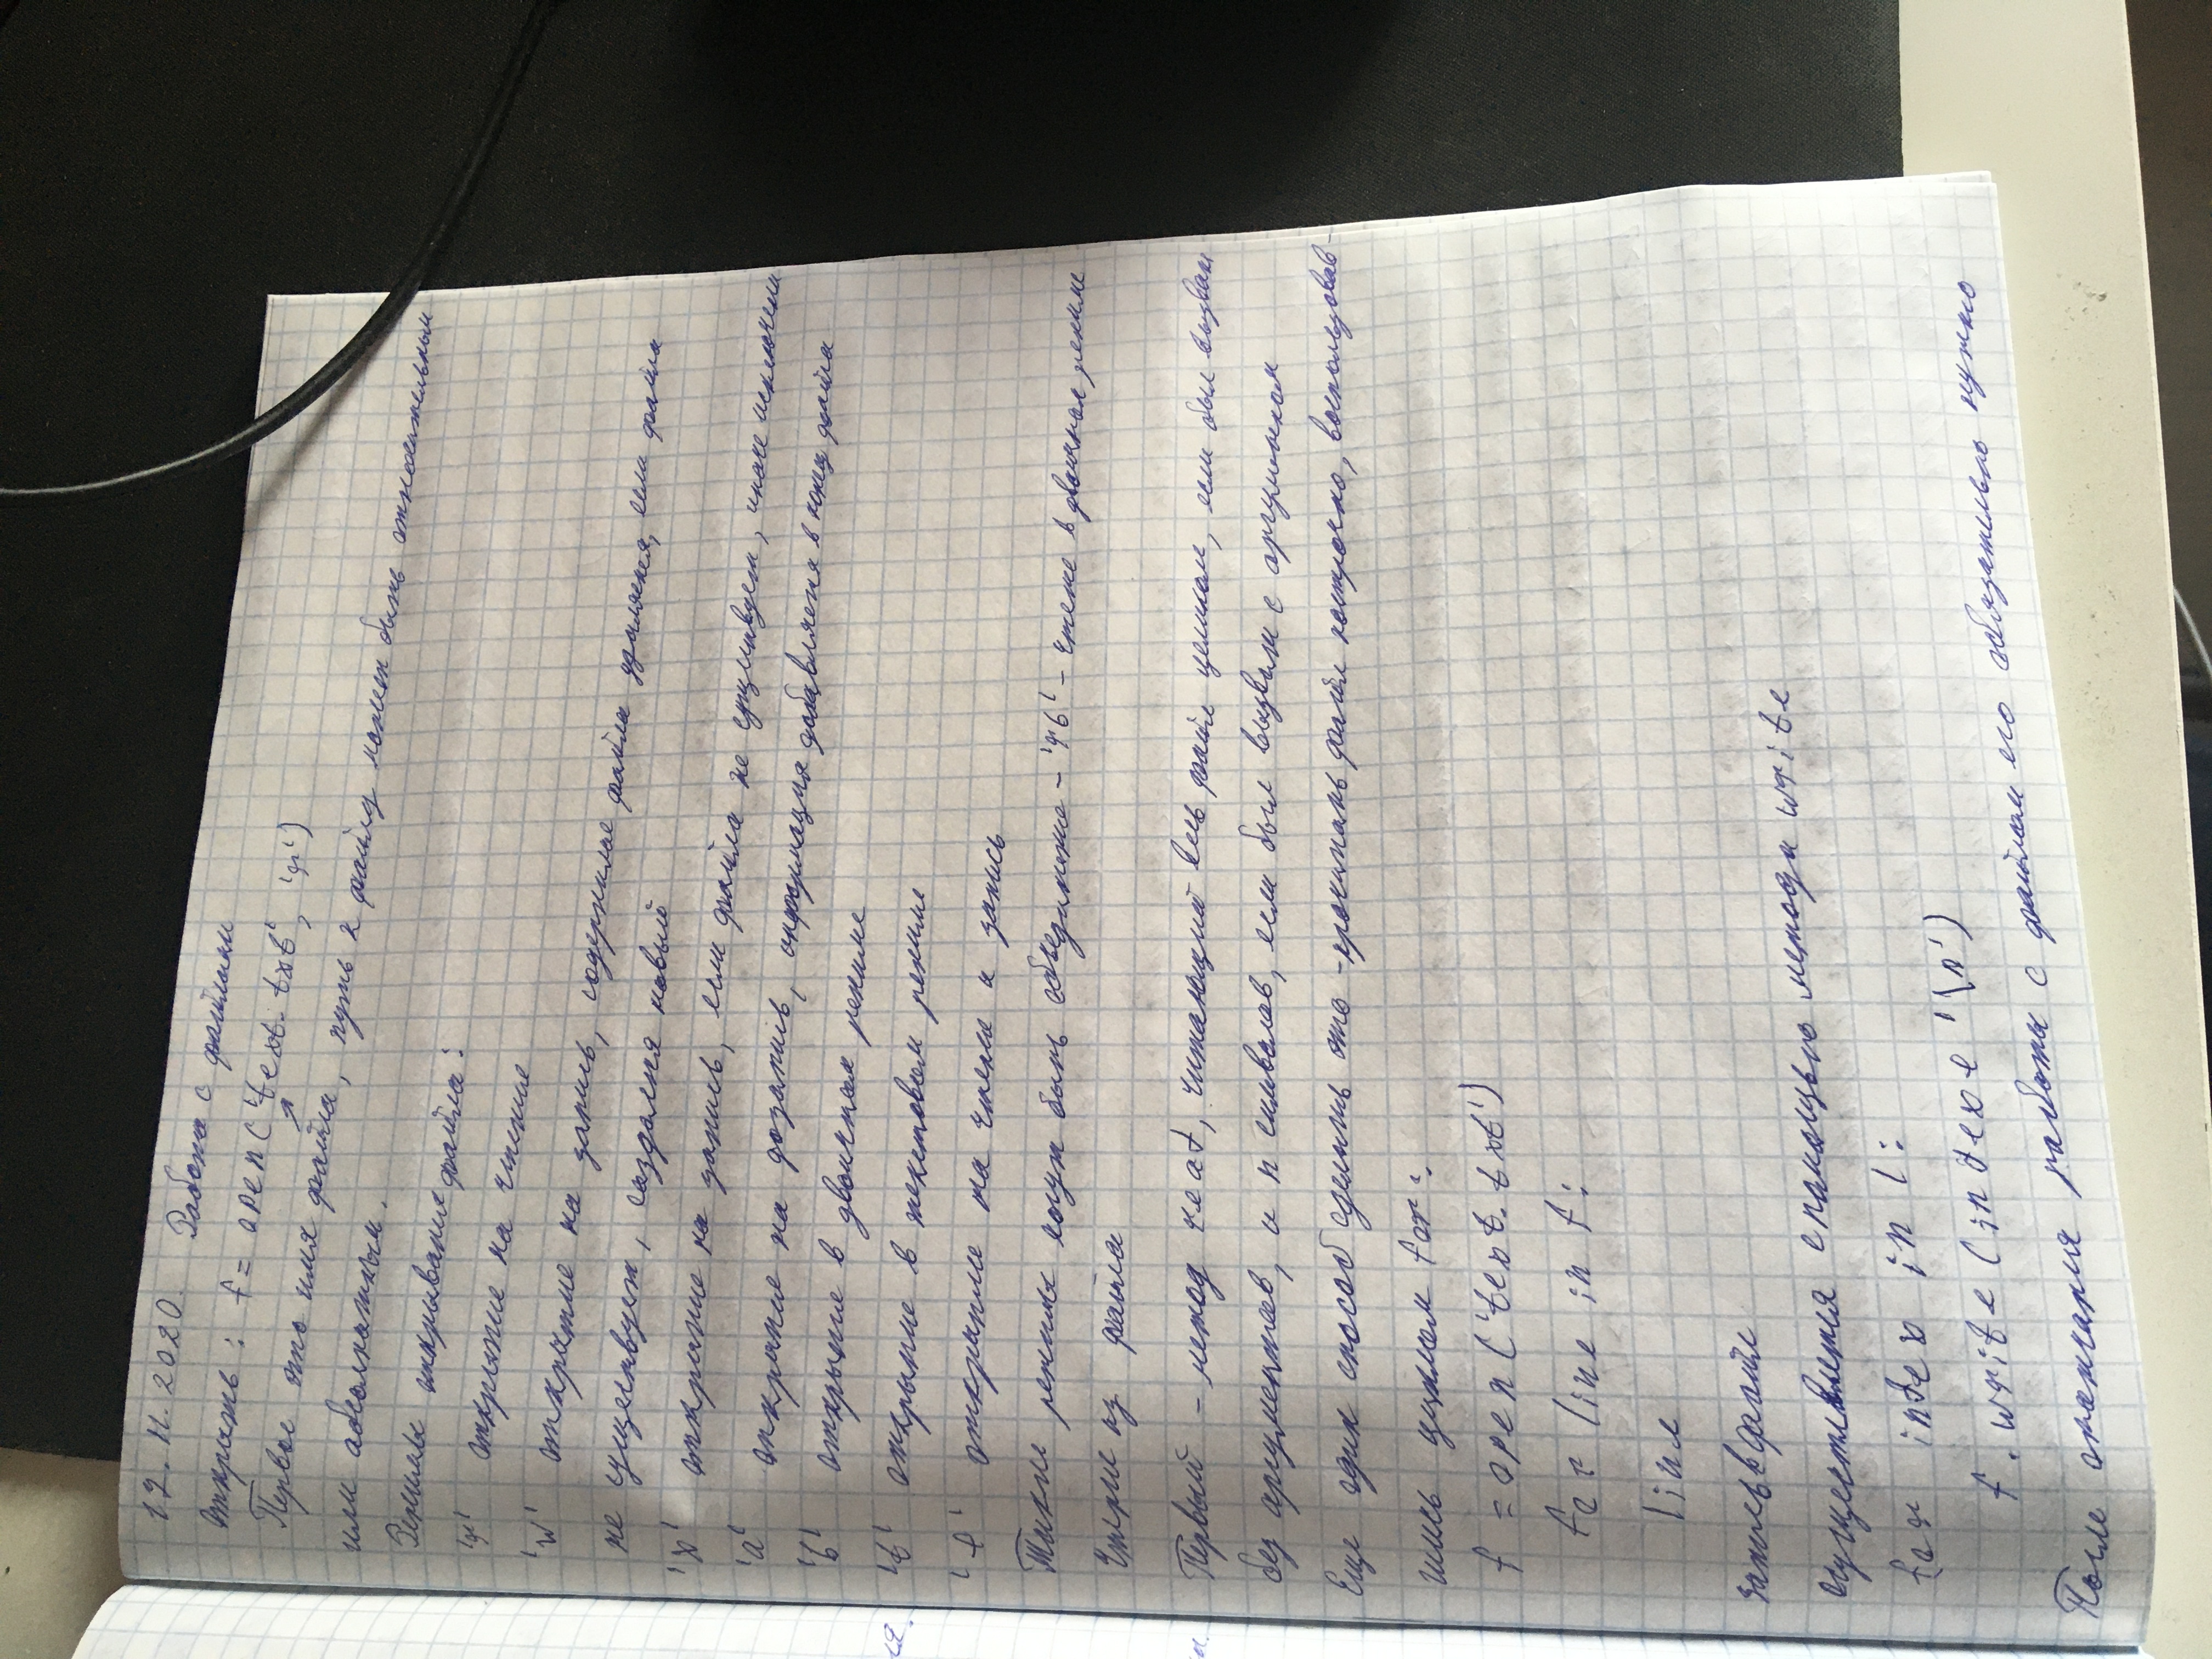 17.11.2020. Работа с файлами
открыть: f = open('text.txt', 'r')
Первое это имя файла, путь к файлу может быть относительным
или абсолютным.
Режимы открывания файла:
'r' открытие на чтение
'w' открытие на запись, содержимое файла удаляется, если файла
не существует, создается новый
'x' открытие на запись, если файла не существует, иначе исключени
'a' открытие на дозапись, информация добавляется в конец файла
'b' открытие в двоичном режиме
't' открытие в текстовом режиме
открытие на чтение и запись
Такие режимы могут быть объединены - 'rb' - чтение в двоичном режиме
Чтение из файла
Первый - метод reat, читающий весь файл целиком, если был вызван
без аргументов, и n символов, если был вызван с аргументом
Еще один способ сделать это - прочитать файл построчно, воспользовав-
шись циклом for:
f = open('text.txt')
for line in f:
line
запись в файл
осуществляется с помощью метода write
for intex in l:
f.write(intex e '\n')
После окончания работы с файлом его обязательно нужно